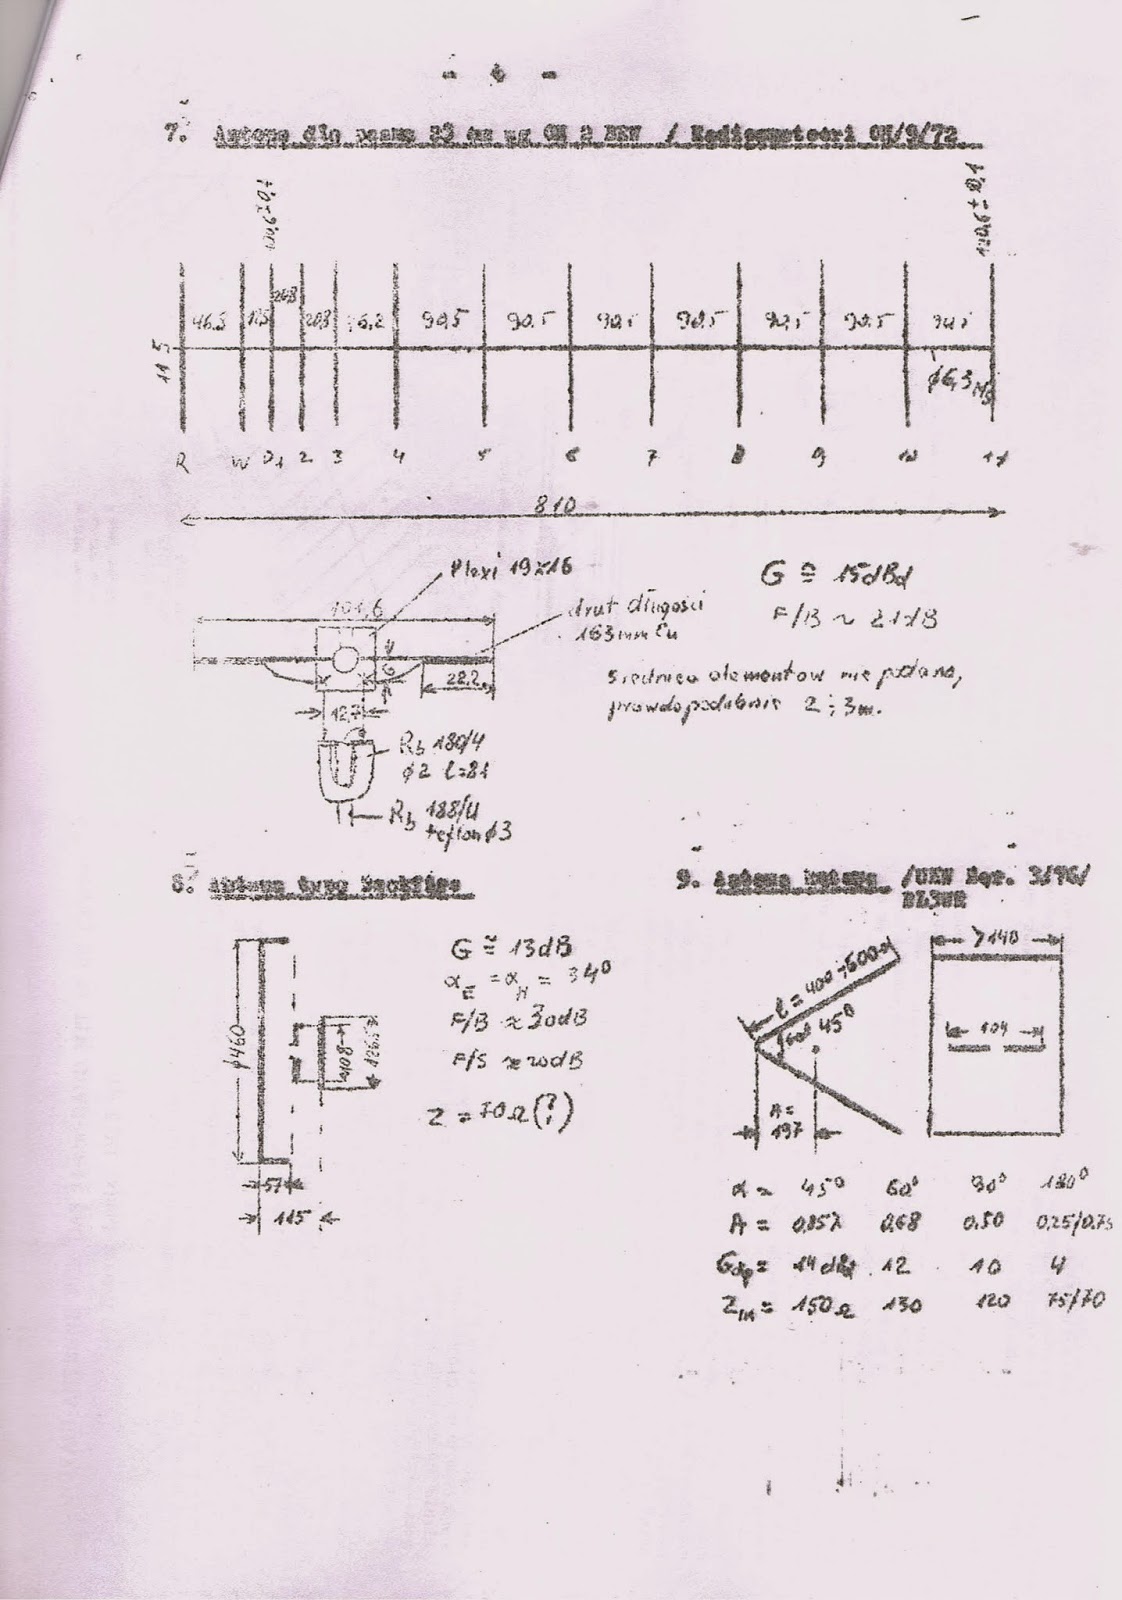 7. Antena dla pasma 23 cm wg OK 2 / OK/9/72
120,6 ± 0,1
46.3 12,5 20,8 76,2 90,5 90.5 90,5 90,5 90,5
115
φ6,3
R W D1 2 3 4 5 6 7 8 9 10 11
810
Plexi 19x16
101,6
drut długości
163mm Cu
22.2
12,7
Rb 180/4
φ2 l=81
Rb 188/U
teflon φ3
G ≅ 15dBd
F/B ~ 21dB
średnica elementów nie podana,
prawdopodobnie 2÷3m.
8. Antena typu Backfire
φ460
57
115
108
126,5
G ≅ 13dB
αE = αH = 34°
F/B ≈ 30dB
F/S ≈ 20dB
Z = 70Ω(?)
9. Antena kątowa /UKW 3/76/
l = 400÷600
45°
A =
197
>140
104
α = 45° 60° 90° 180°
A = 0,85λ 0,68 0.50 0,25/0.75
Gdip= 14dBd 12 10 4
Zin= 150Ω 130 120 75/70